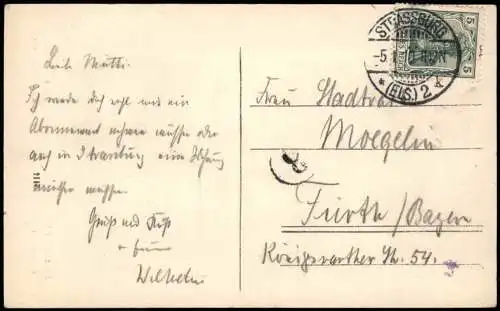 Liebe Mutti.
Ich werde doch wohl mir ein
Abonnement nehmen müssen oder
auch in Strassburg eine
müssen.
Gruß und Kuß
Wilhelm
STRASSBURG
(ELS.) 2
5
5
Frau Stadtrat
Moegelin
Fürth / Bayern
Königswarther Str. 54.